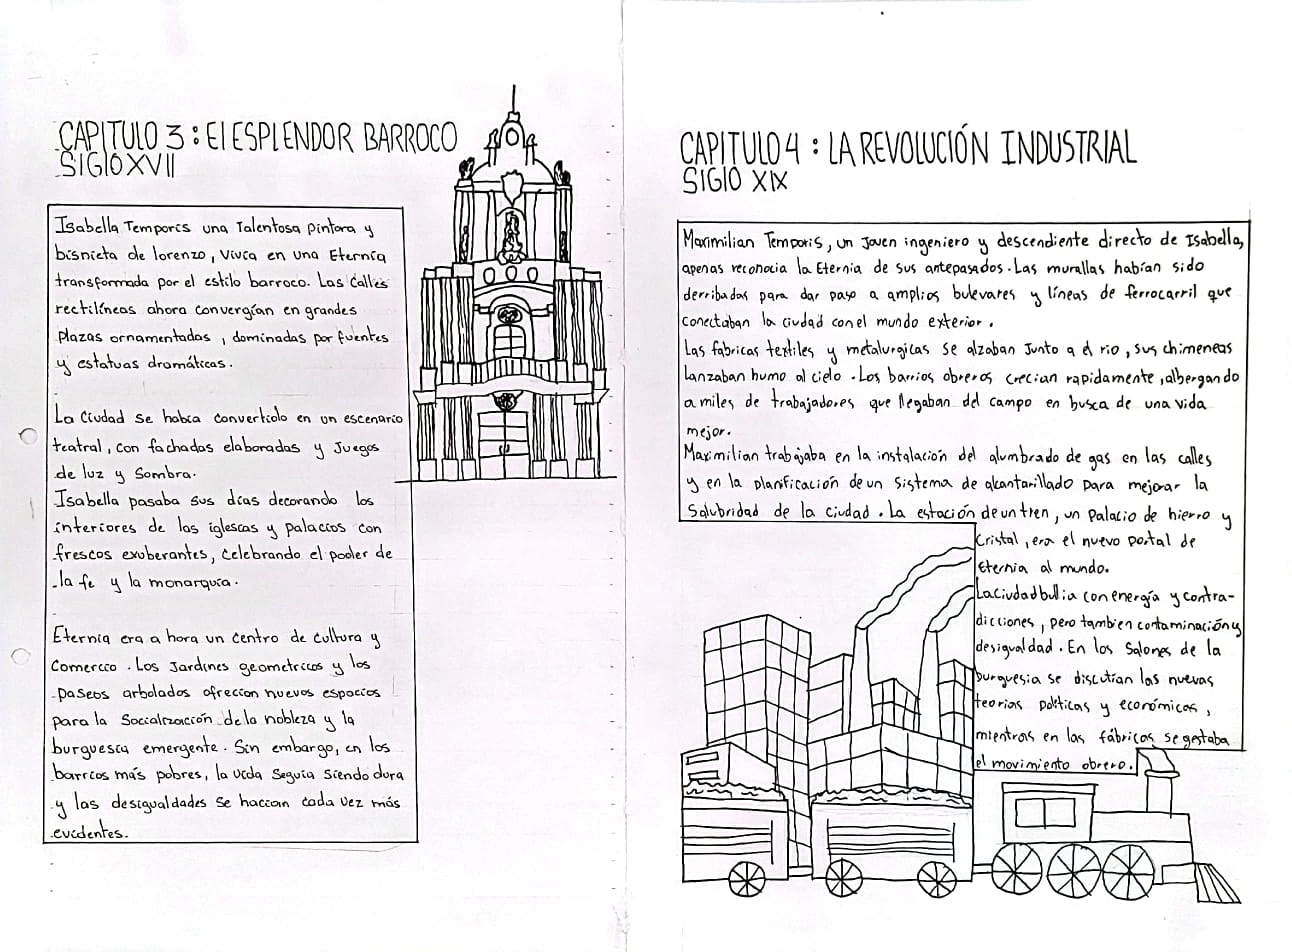 CAPITULO 3 : El ESPLENDOR BARROCO
SIGlO XVII
Isabella Temporis una Talentosa pintora y
bisnieta de lorenzo, vivia en una Eternia
transformada por el estilo barroco. Las Calles
rectilíneas ahora convergían en grandes
plazas ornamentadas, dominadas por fuentes
y estatuas dramáticas.
La Ciudad se habia convertiolo en un escenario
teatral, con fachadas elaboradas y Juegos
de luz y Sombra.
Isabella pasaba sus días decorando los
interiores de las iglesias y palacios con
frescos exuberantes, Celebrando el poder de
la fe y la monarquia.
Eternia era a hora un Centro de Cultura y
Comercio. Los Jardines geometricos y los
paseos arbolados ofrecian nuevos espacios
para la Socialización de la nobleza y la
burguesia emergente. Sin embargo, en los
barrios más pobres, la vida Seguia Siendo dura
y las desigualdades Se hacian Cada vez más
evidentes.
CAPITULO 4 : LA REVOLUCIÓN INDUSTRIAL
SIGlO XIX
Maximilian Temporis, un Joven ingeniero y descendiente directo de Isabella,
apenas reconocia la Eternia de sus antepasados. Las murallas habían sido
derribadas para dar paso a amplios bulevares y líneas de ferrocarril que
Conectaban la ciudad con el mundo exterior.
Las fabricas textiles y metalurgicas se alzaban Junto a el rio, sus chimeneas
Lanzaban humo al cielo. Los barrios obreros crecian rapidamente, albergando
a miles de trabajadores que llegaban del campo en busca de una vida
mejor.
Maximilian trabajaba en la instalación del alumbrado de gas en las calles
y en la planificación de un Sistema de alcantarillado para mejorar la
Salubridad de la ciudad. La estación de un tren, un palacio de hierro y
Cristal, era el nuevo portal de
Eternia al mundo.
La ciudad bullia con energía y contra-
dicciones, pero tambien contaminación y
desigualdad. En los Salones de la
burguesia se discutian las nuevas
teorias politicas y económicas,
mientras en las fábricas se gestaba
el movimiento obrero.